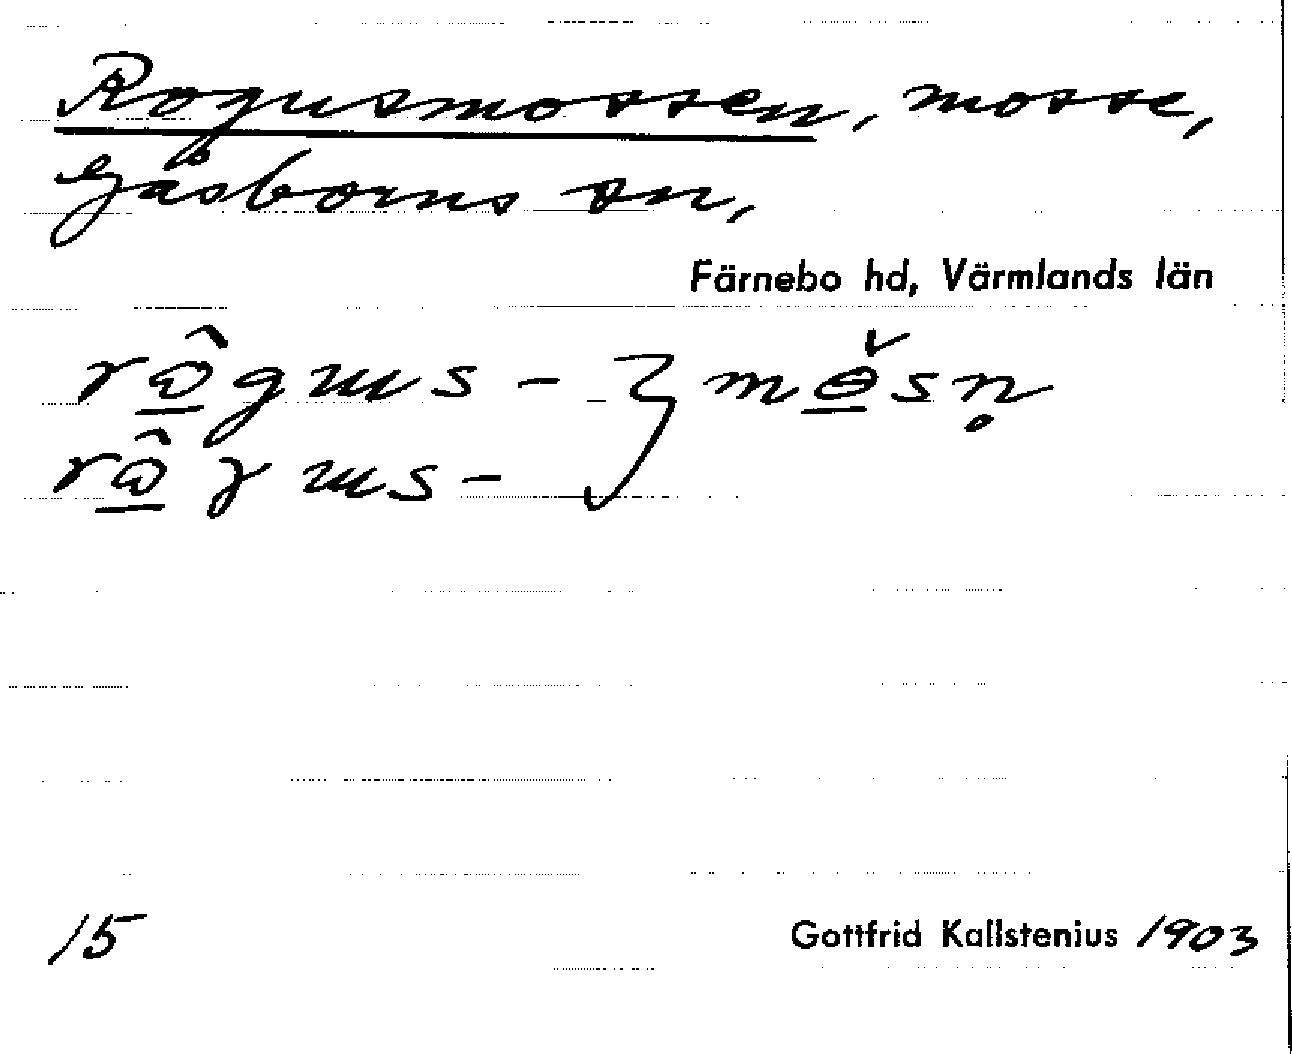 Rogusmossen, mosse,
Gåsborns sn,
Färnebo hd, Värmlands län
rω̂gus- } mɵ̌sn̥
rω̂γus-
15
Gottfrid Kallstenius 1903